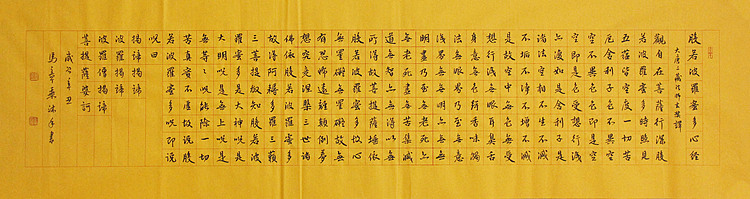 般若波羅蜜多心經
大唐三藏法師玄奘譯
觀自在菩薩行深般
若波羅蜜多時照見
五蘊皆空度一切苦
厄舍利子色不異空
空不異色色即是空
空即是色受想行識
亦復如是舍利子是
諸法空相不生不滅
不垢不淨不增不減
是故空中無色無受
想行識無眼耳鼻舌
身意無色聲香味觸
法無眼界乃至無意
識界無無明亦無無
明盡乃至無老死亦
無老死盡無苦集滅
道無智亦無得以無
所得故菩提薩埵依
般若波羅蜜多故心
無罣礙無罣礙故無
有恐怖遠離顛倒夢
想究竟涅槃三世諸
佛依般若波羅蜜多
故得阿耨多羅三藐
三菩提故知般若波
羅蜜多是大神咒是
大明咒是無上咒是
無等等咒能除一切
苦真實不虛故說般
若波羅蜜多咒即說
咒曰
揭諦揭諦
波羅揭諦
波羅僧揭諦
菩提薩婆訶
沐手書